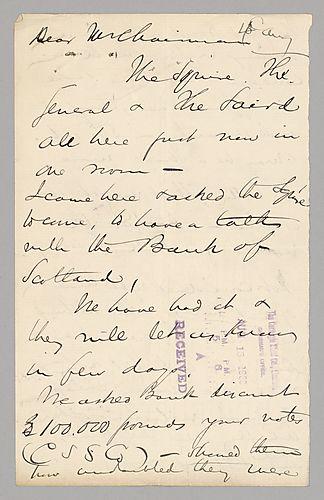 Dear Mr Chairman 15 Aug
The Squire. The
General & The Laird
all here just now in
one room —
I came here & asked the Squire
to come, to have a talk
with the Bank of
Scotland,
We have had it &
they will let us know
in few days.
We asked Bank discount
£100.000 pounds your notes
(C S S Co) – Shewed them
how undoubted they were
RECEIVED
AUG 16